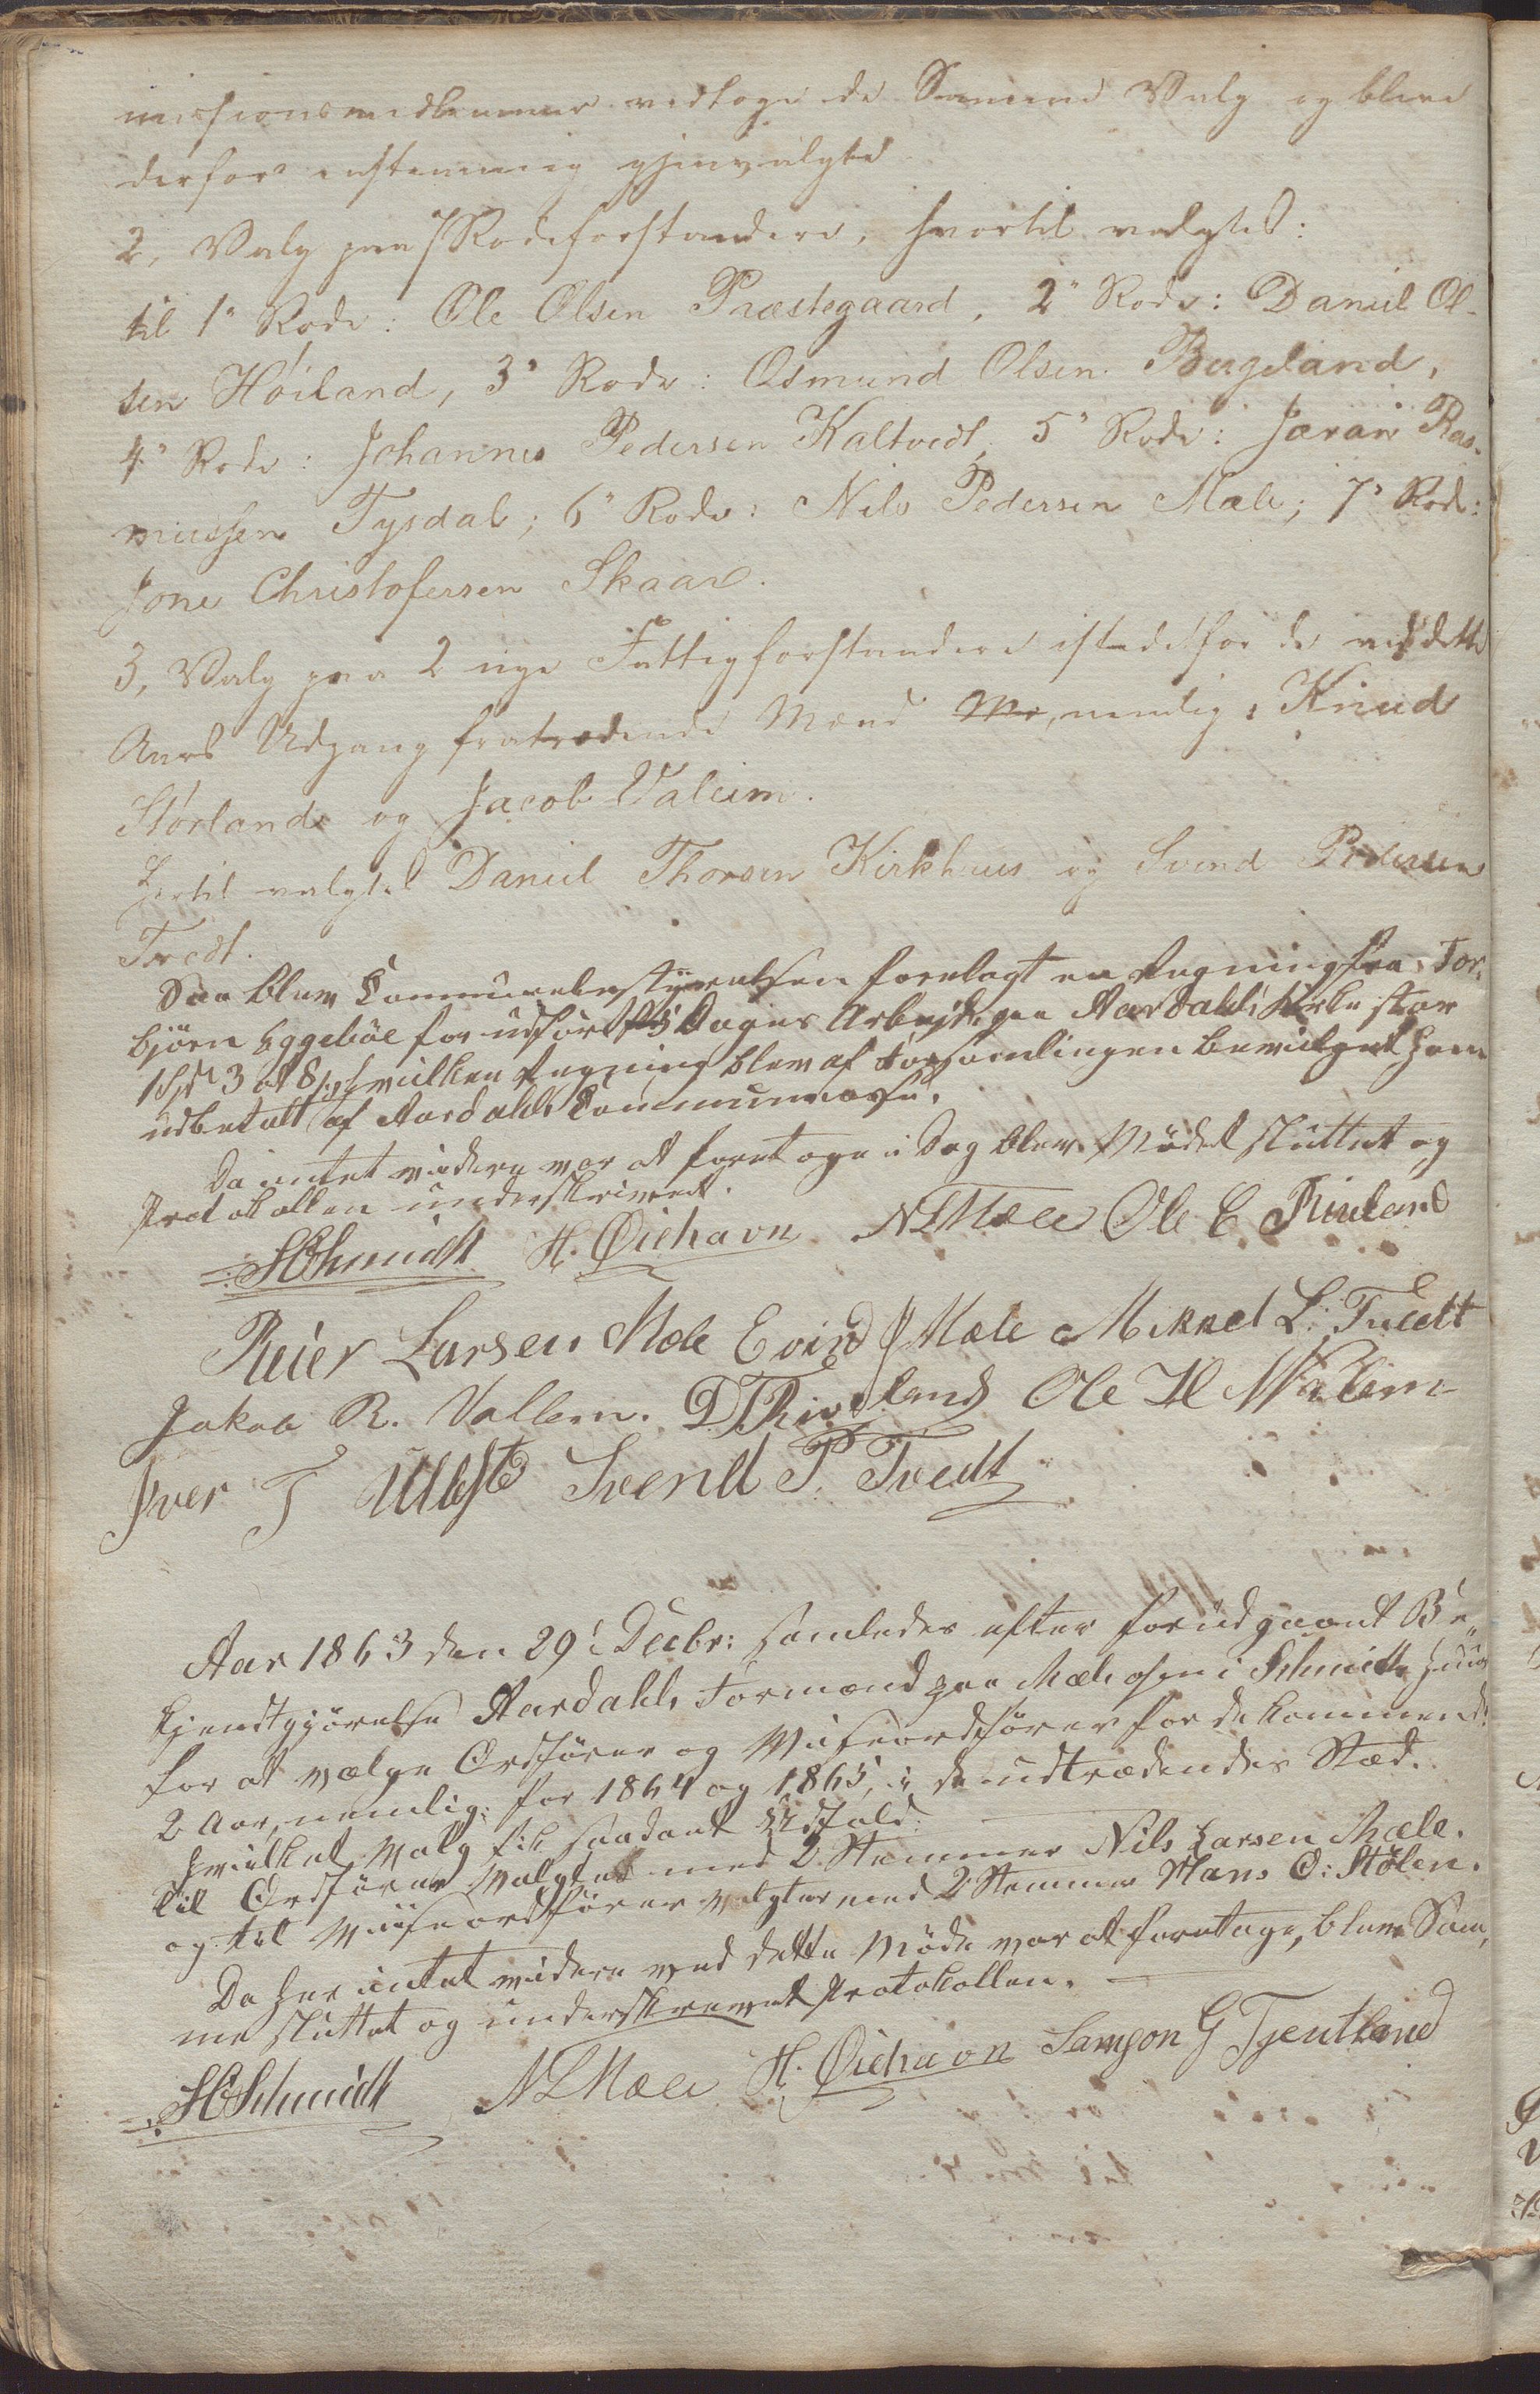 missionsmedlemmer vedtoge de Samme Valg og bleve
derfor enstemmig gjenvalgte
2, Valg paa 7 Rodeforstandere, hvortil valgtes:
til 1ˢ Rode: Ole Olsen Præstegaard, 2ⁿ Rode: Daniel Ol-
sen Høiland, 3ˢ Rode: Osmund Olsen Bergeland,
4ˢ Rode: Johannes Pedersen Kaltvedt, 5ˢ Rode: Jøran Ras-
mussen Tysdal; 6ˢ Rode: Nils Pedersen Mæle; 7ˢ Rode:
Jone Christofersen Skaar.
3, Valg paa 2 nye Fattigforstandere istedetfor de ved dette
Aars Udgang fratrædende Mænd nemlig: Knud
Størland og Jacob Valeim.
Hertil valgtes Daniel Thorsen Kirkhus og Svend Pedersen
Tvedt.
Saa blev Communebestyrelsen forelagt en Regning fra Tor-
bjørn Eggebøe for udført 5 Dages Arbejde paa Aardahls Kirke stor
1 Spd 3 ort 8 s hvilken Regning blev af Forsamlingen bevilget ham
udbetalt af Aardahls Communecasse.
Da intet videre var at foretage i Dag blev Mødet sluttet og
Protokollen underskrevet.
HSchmidt H. Øiehavn NLMæle Ole E Riveland
Reier Larsen Mæle Evind J Mæle Mikkel L. Tvedt
Jakob R. Valleim. D.T.Riveland Ole H Walem
Iver T Ulvst Svend P. Tvedt
Aar 1863 den 29ᵈ Decbr: samledes efter forudgaaet Be-
kjendtgjørelse Aardahls Formænd paa Mæleosen i Schmidts Huus
for at vælge Ordfører og Viseordfører for de kommende
2 Aar, nemlig: for 1864 og 1865, i de udtrædendes Sted.
Hvilket Valg fik saadant Udfald:
til Ordfører valgtes med 2 Stemmer Nils Larsen Mæle.
og til Viseordfører valgtes med 2 Stemmer Hans O: Stølen.
Da her intet videre ved dette Møde var at foretage, blev Sam-
me sluttet og underskrevet Protokollen.
HSchmidt NLMæle H. Øiehavn Samson G Tjentland